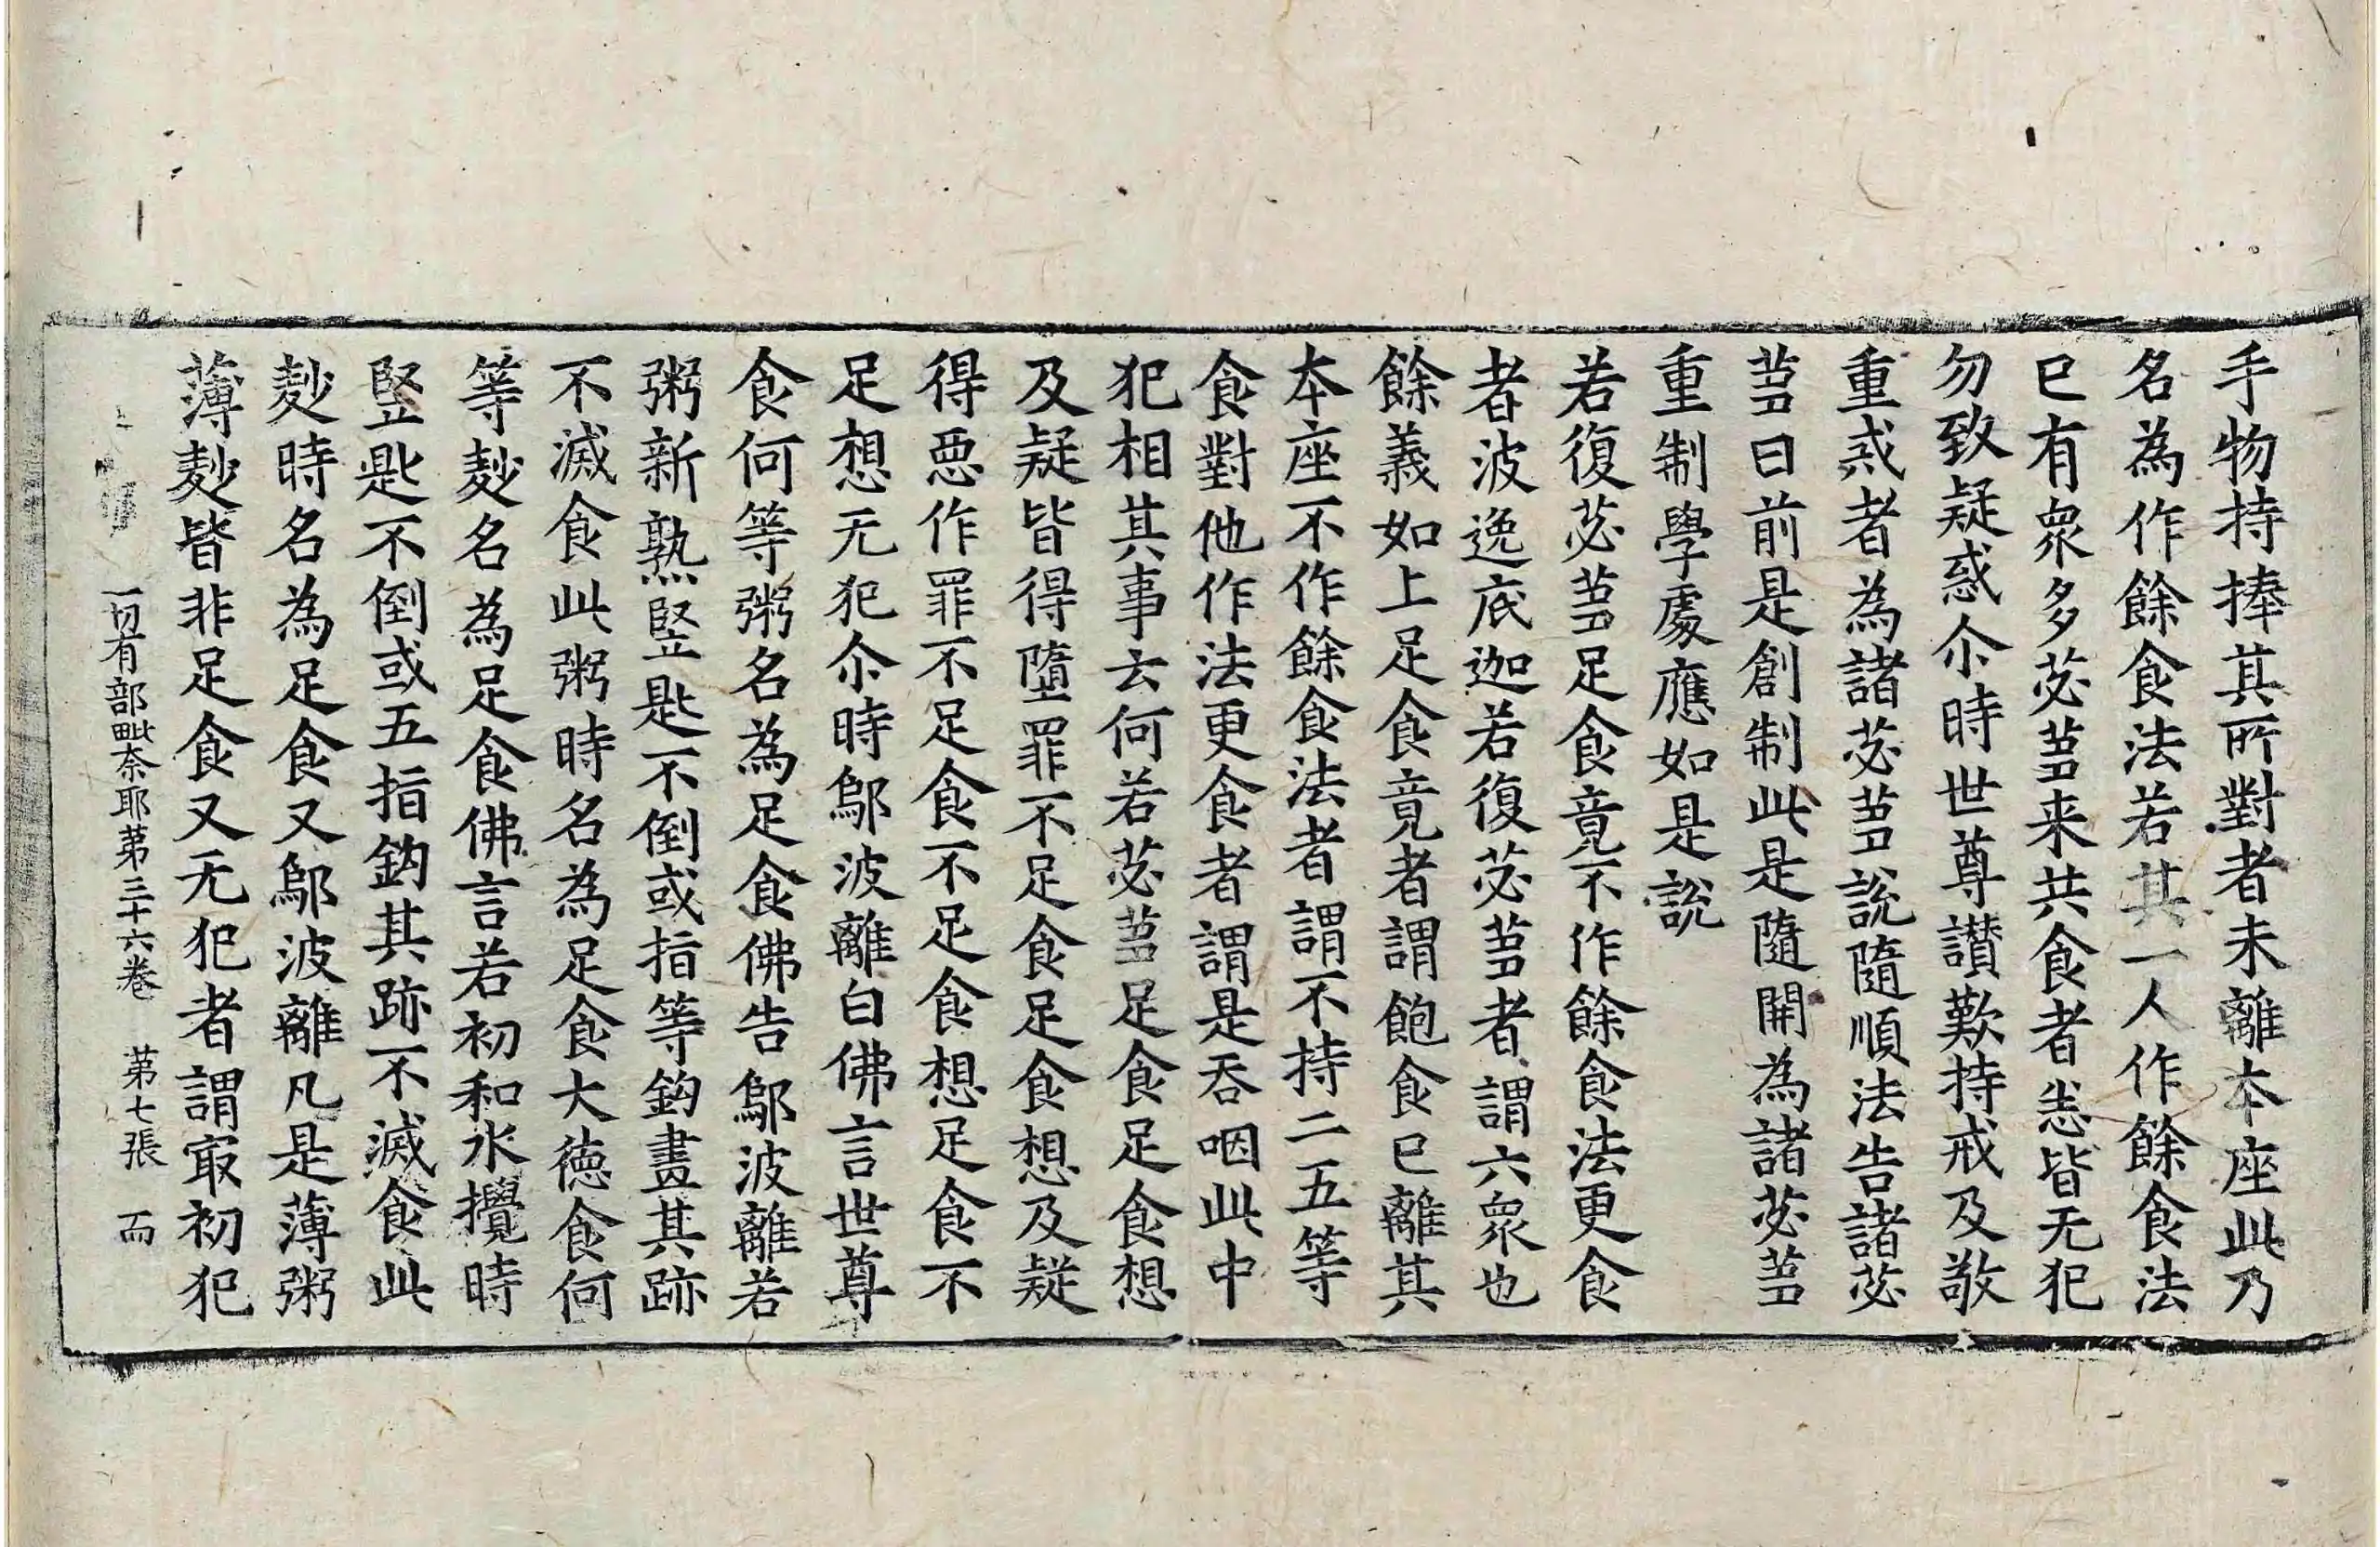 手物持捧其所對者未離本座此乃
名為作餘食法若其一人作餘食法
已有衆多苾芻来共食者悉皆无犯
勿致疑惑尒時世尊讃歎持戒及敬
重戒者為諸苾芻說隨順法告諸苾
芻曰前是創制此是隨開為諸苾芻
重制學處應如是說
若復苾芻足食竟不作餘食法更食
者波逸底迦若復苾芻者謂六衆也
餘義如上足食竟者謂飽食已離其
本座不作餘食法者謂不持二五等
食對他作法更食者謂是吞咽此中
犯相其事云何若苾芻足食足食想
及疑皆得墮罪不足食足食想及疑
得惡作罪不足食不足食想足食不
足想无犯尒時鄔波離白佛言世尊
食何等粥名為足食佛告鄔波離若
粥新熟竪匙不倒或指等鈎畫其跡
不滅食此粥時名為足食大德食何
等麨名為足食佛言若初和水攪時
竪匙不倒或五指鈎其跡不滅食此
麨時名為足食又鄔波離凡是薄粥
薄麨皆非足食又无犯者謂㝡初犯
一切有部毗奈耶第三十六卷 第七張 而